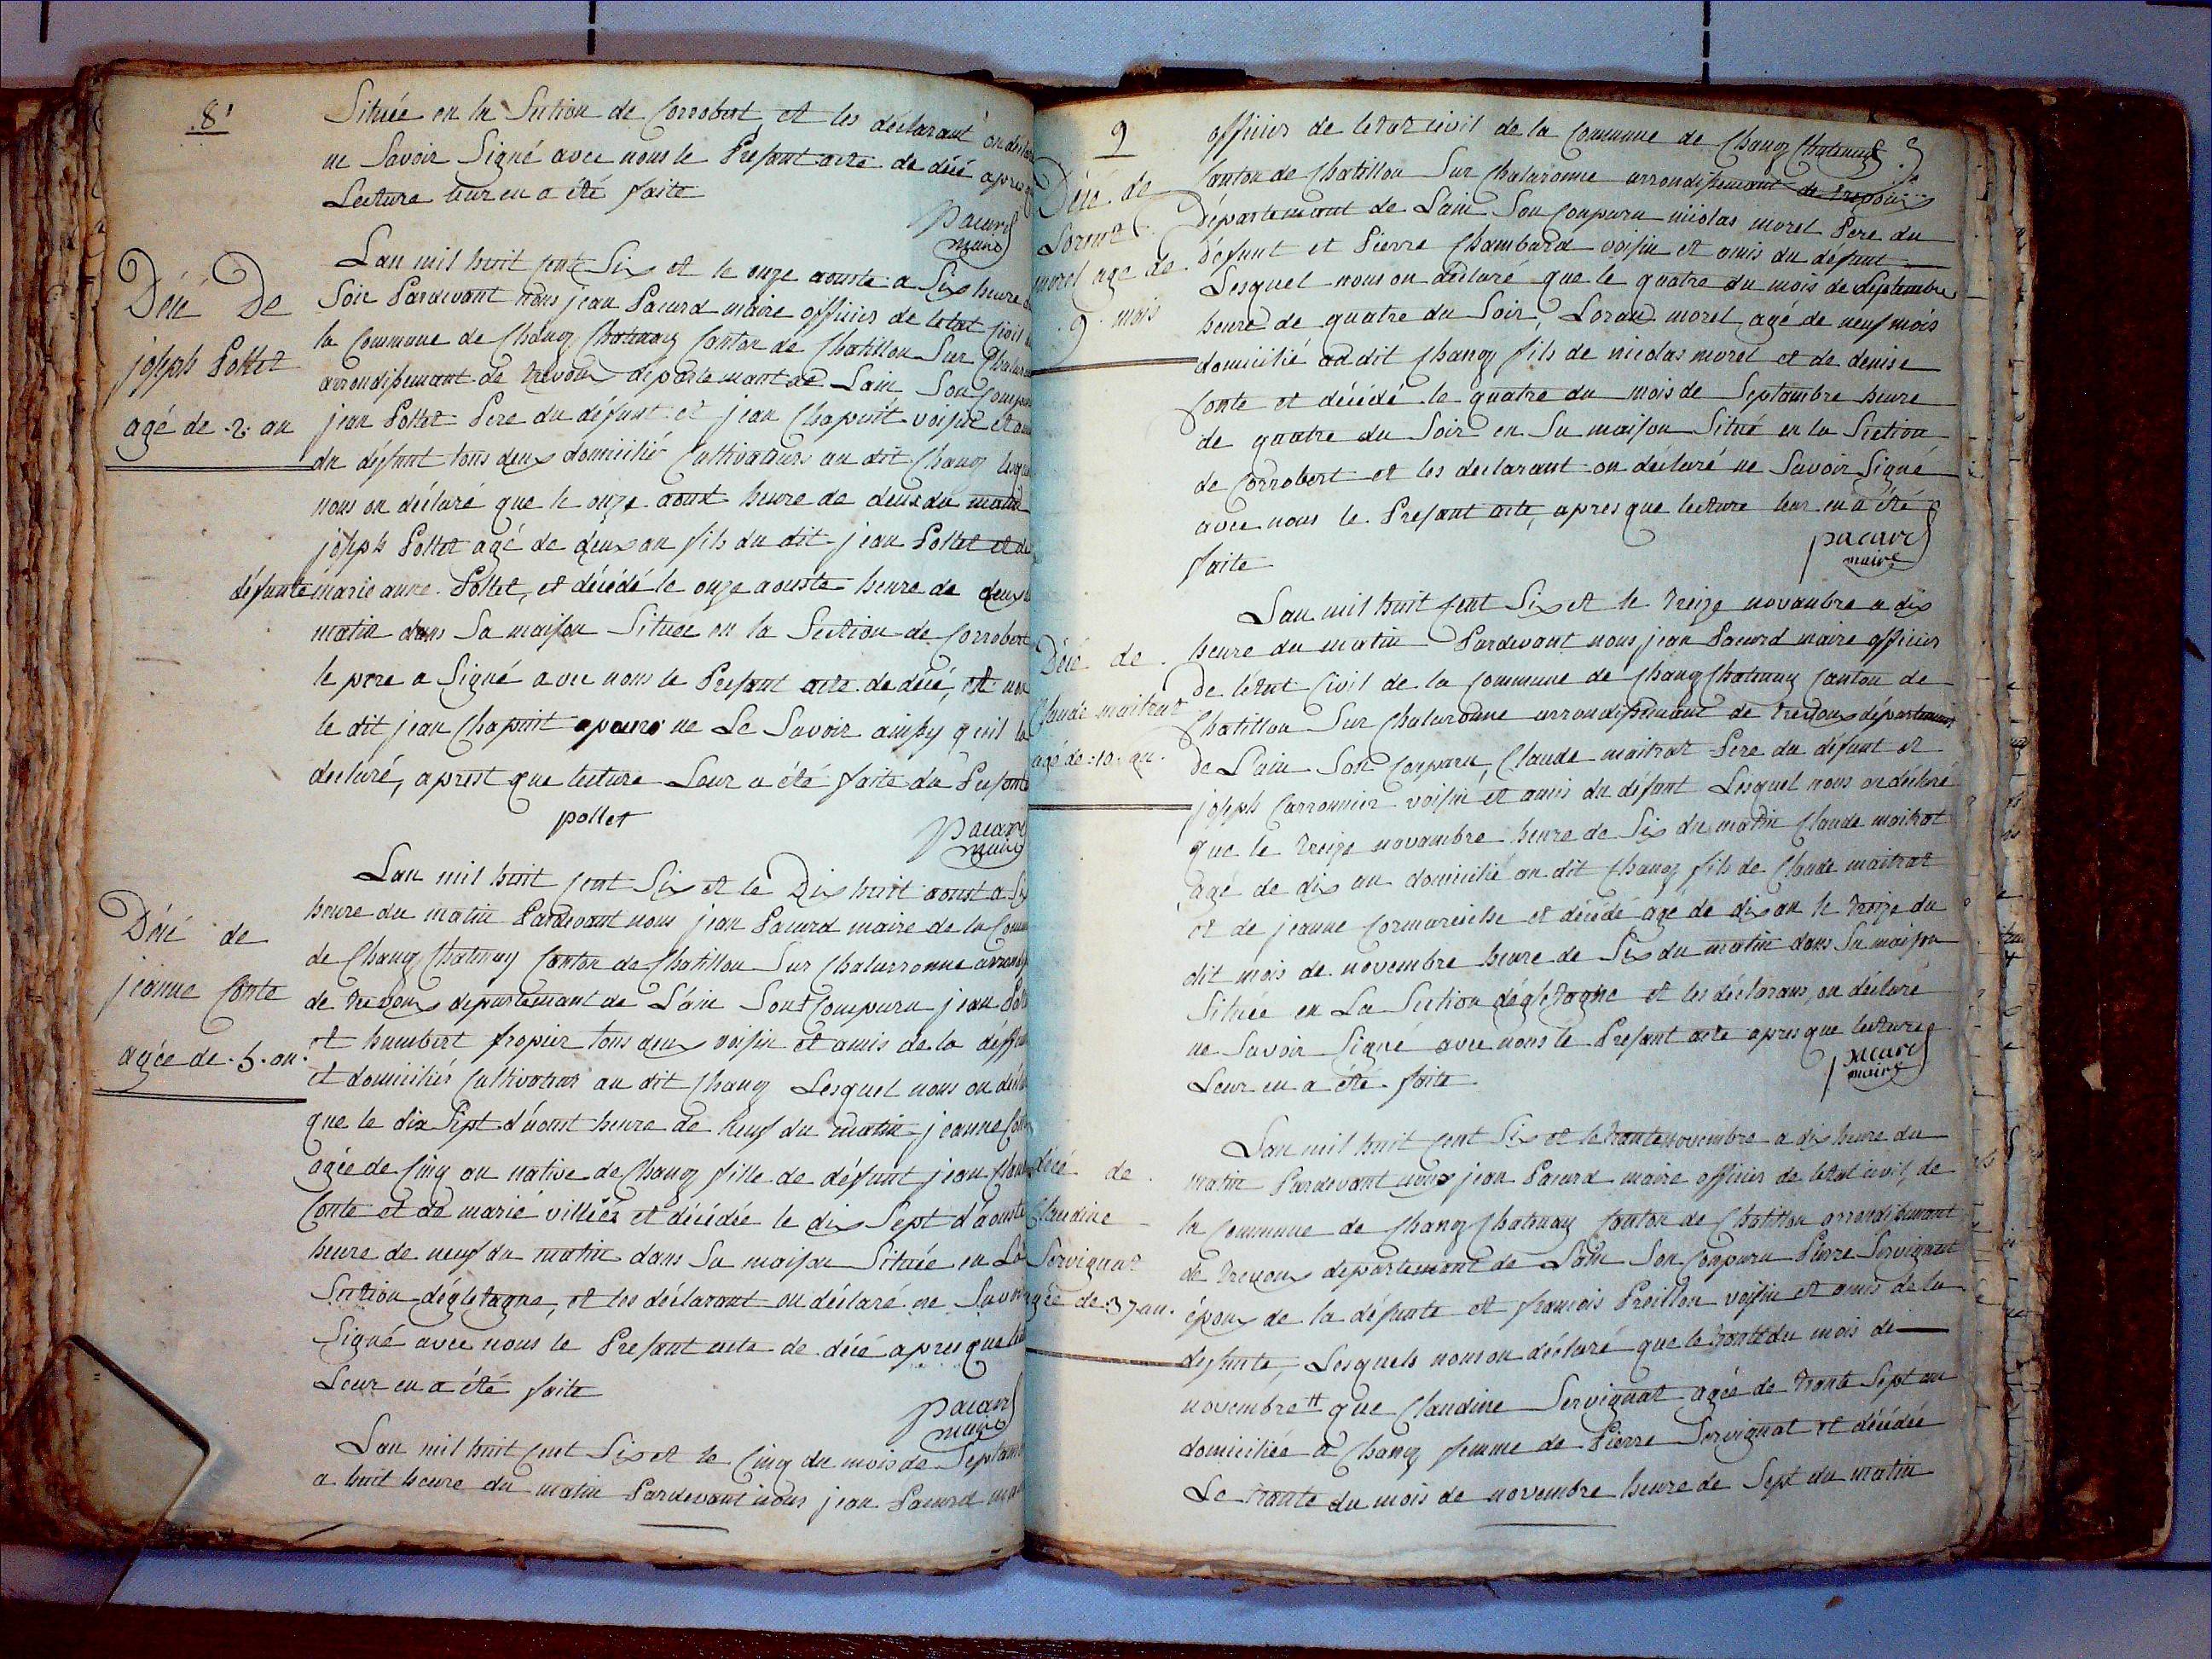 8
Située en la Section de Corrobert, et les déclarant on déclaré
ne Savoir Signé avec nous le Present acte de décé apres que
Lecture leur en a été faite
pacard
maire
Décé De
joseph Pollet
agé de .2. an
Lan mil huit cents Six et le onze aouste a Six heure du
Soir Pardevant nous jean Pacard maire officier de letat Civil de
la Commune de Chanoz Chatenay Canton de Chatillon Sur Chalar
arrondissemant de trevoux departemant de Lain, Son Compar
jean Pollet Pere du défunt et jean Chapuit voisin et ami
du défunt tous deux domicilié Cultivateurs au dit Chanoz lesquel
nous on déclaré que le onze aoust heure de deux du matin
joseph Pollet agé de deux an fils du dit jean Pollet et de
défunte marie anne Pollet, et décédé le onze aouste heure de deux du
matin dans Sa maison Située en la Section de Corrobert
le pere a Signé avec nous le Present acte de décé, et non
le dit jean Chapuit a pour ne Le Savoir ainsy quil la
declaré, aprest que lecture Leur a été faite du Present
pollet
pacard
maire
Décé de
jeanne Conte
agée de .5. an.
Lan mil huit cent Six et le Dix huit aoust a Six
heure du matin Pardevant nous jean Pacard maire de la Comm
de Chanoz Chatenay Canton de Chatillon Sur Chalarronne arrondis
de trevoux departemant de L'ain Sont Comparu jean Poll
et humbert fropier tous deux voisin et amis de la deffun
et domiciliés Cultivateur au dit Chanoz Lesquel nous on décla
que le dix Sept d'aoust heure de neuf du matin jeanne Conte
agée de Cinq an native de Chanoz fille de défunt jean Claud
Conte et de marie villier et décédée le dix Sept d'aouste
heure de neuf du matin dans Sa maison Située en La
Section dégletagne, et les déclarant on déclaré ne Savoir
Signé avec nous le Present acte de décé apres que lect
Leur en a été faite
pacard
maire
Lan mil huit Cent Six et le Cinq du mois de Septamb
a huit heure du matin Pardevant nous jean Pacard mai
9
officier de letat civil de la Commune de Chanoz Chatenay
Canton de Chatillon Sur Chalaronne arrondissemant de trevoux
Décé de
Lorent
morel agé de
.9. mois
Département de Lain Son Comparu nicolas morel Pere du
défunt et Pierre Chambard voisin et amis du défunt
Lesquel nous on déclaré que le quatre du mois de Septembre
heure de quatre du Soir, Loran morel, agé de neuf mois
domicilié au dit Chanoz fils de nicolas morel et de denise
Conte et décédé le quatre du mois de Septambre heure
de quatre du Soir en Sa maison Situé en la Section
de Corrobert et les declarant on déclaré ne Savoir Signé
avec nous le Present acte, apres que lecture leur en a été
faite
pacard
maire
Décé de
Claude maitrat
agé de .10. an.
Lan mil huit Cent Six et le treize novanbre a dix
heure du matin Pardevant nous jean Pacard maire officier
de létat Civil de la Commune de Chanoz Chatenay Canton de
Chatillon Sur Chalaronne arrondissemant de trevoux départemant
de L'ain Son Comparu, Claude maitrat Pere du défunt et
joseph Carronnier voisin et amis du défunt Lesquel nous on déclaré
que le treize novambre heure de Six du matin Claude maitrat
agé de dix an domicilié au dit Chanoz fils de Claude maitrat
et de jeanne Cormareiche et décédé agé de dix an le treize du
dit mois de novembre heure de Six du matin dans Sa maison
Située en La Section dégletagne et les déclarans, on déclaré
ne Savoir Signé avec nous le Present acte apres que lecture
Leur en a été faite
pacard
maire
décé de
Claudine
Servignat
agée de .37. an.
Lan mil huit Cent Six et le trante novembre a dix heure du
matin Pardevant nous jean Pacard maire officier de letat civil, de
la Commune de Chanoz Chatenay Canton de Chatillon arrondissemant
de trevoux departement de Lain Son Comparu Pierre Servignat
époux de la défunte et francois Proillon voisin et amis de la
defunte, Lesquels nous on déclaré que le trante du mois de
novembre que Claudine Servignat agée de trante Sept an
domiciliée a Chanoz femme de Pierre Servignat et décédée
Le trante du mois de novembre heure de Sept du matin